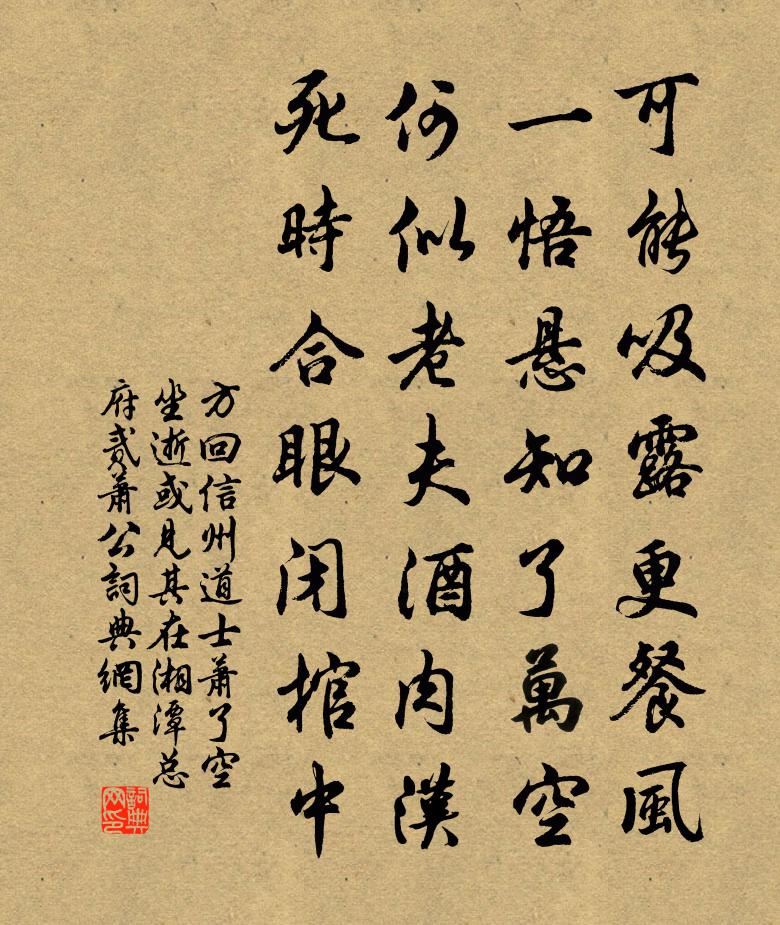 可能吸露更餐風
一悟懸知了萬空
何似老夫酒肉漢
死時合眼閉棺中
方回信州道士蕭了空
坐逝或見其在湘潭总
府貳蕭公詞典網集
詞典网印